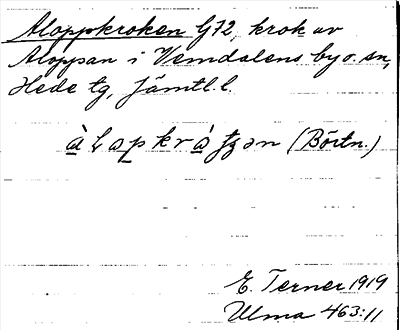 Aloppkroken G72, krok av
Aloppan i Vemdalens by o. sn,
Hede tg, Jämtl. l.
(Börtn.)
E. Terner 1919
Ulma 463:11